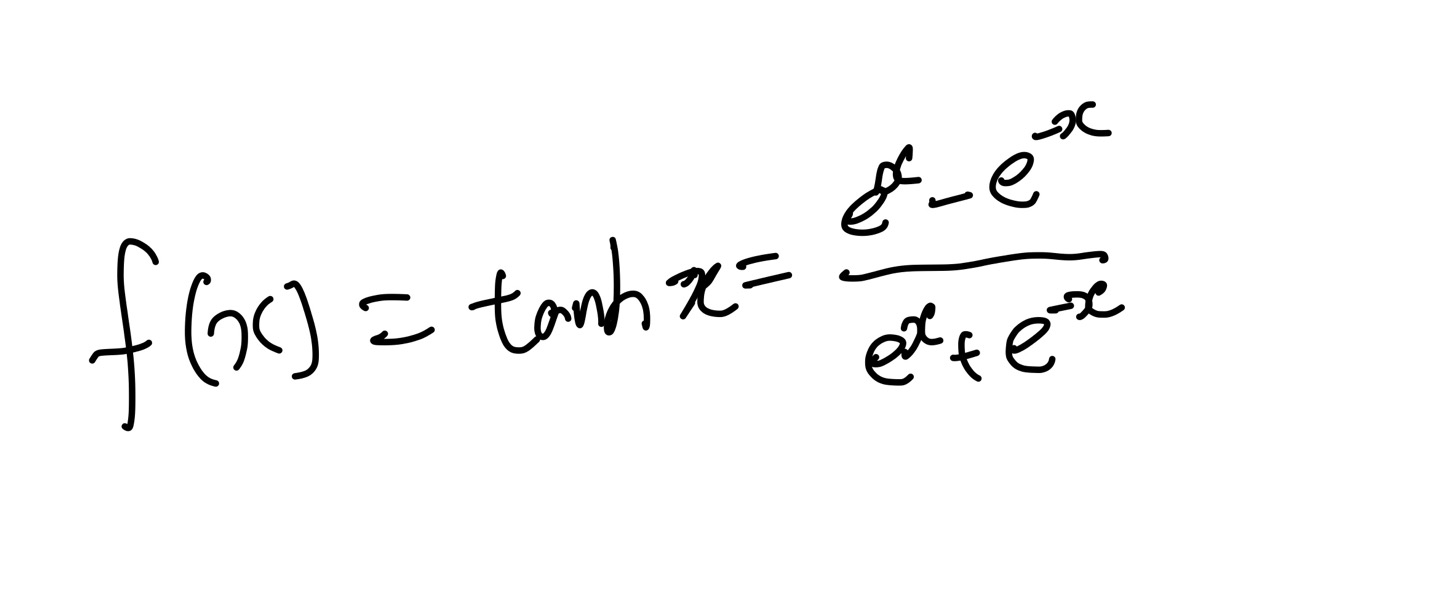 f(x) = tanh x = \frac{e^x - e^{-x}}{e^x + e^{-x}}